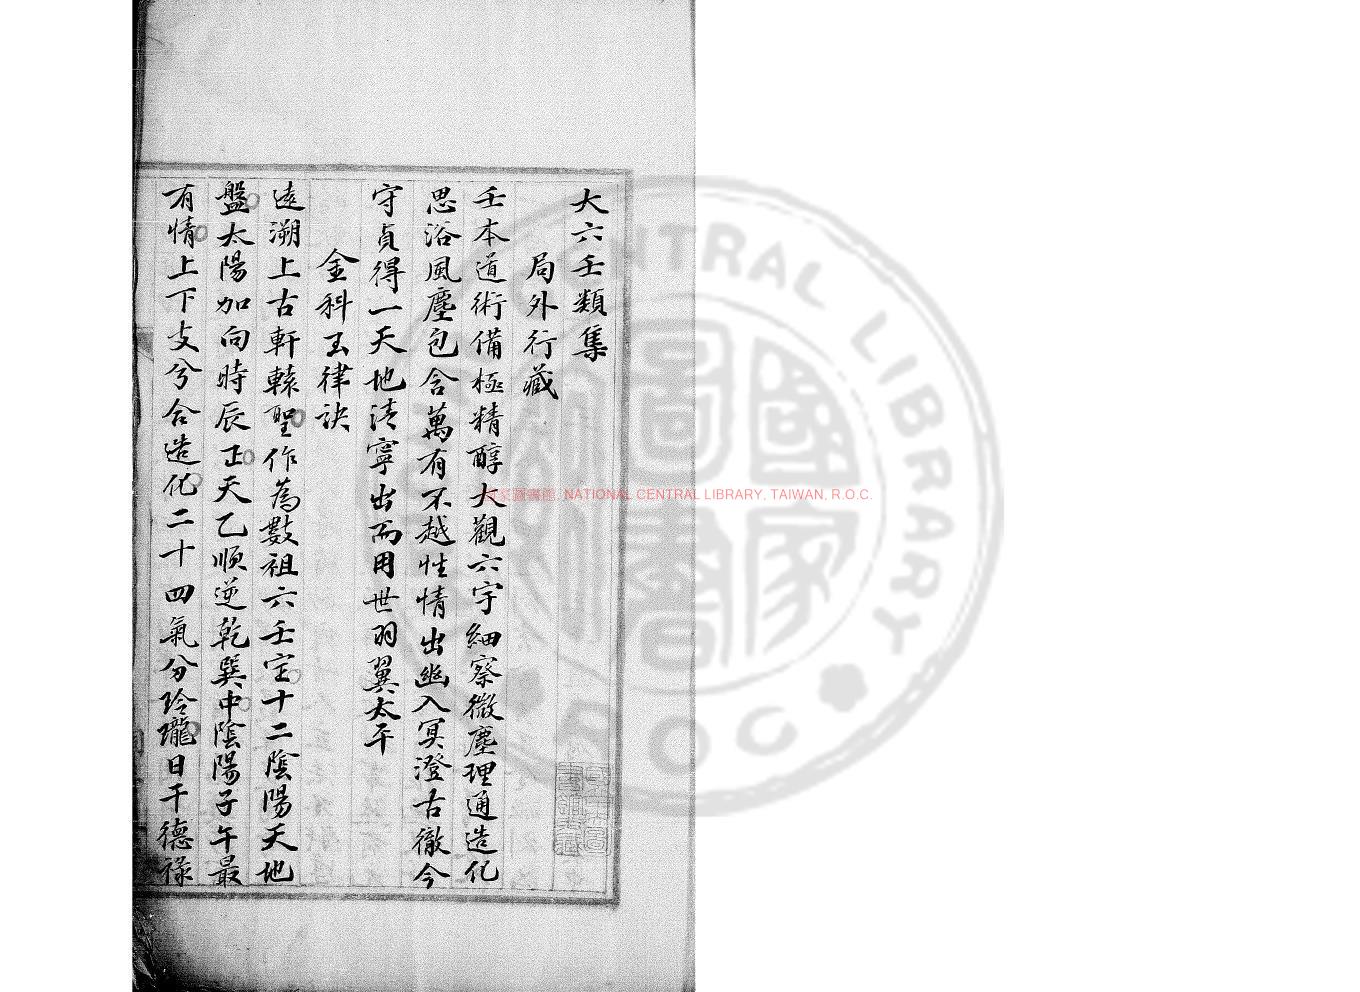 大六壬類集
局外行藏
壬本道術備極精醇大觀六宇細察微塵理通造化
思浴風塵包含萬有不越性情出幽入冥澄古徹今
守貞得一天地清寧出而用世羽翼太平
金科玉律訣
遠溯上古軒轅聖作為數祖六壬定十二陰陽天地
盤太陽加向時辰正天乙順逆乾巽中陰陽子午最
有情上下支兮合造化二十四氣分玲瓏日干德祿
國家圖書館, NATIONAL CENTRAL LIBRARY, TAIWAN, R.O.C.
國家圖書館
NATIONAL CENTRAL LIBRARY
ROC